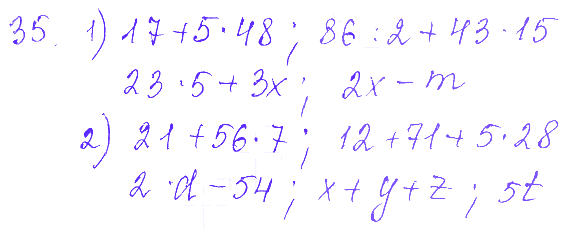 35. 1) 17+5·48; 86:2+43·15
23·5+3x; 2x-m
2) 21+56·7; 12+71+5·28
2·d-54; x+y+z; 5t